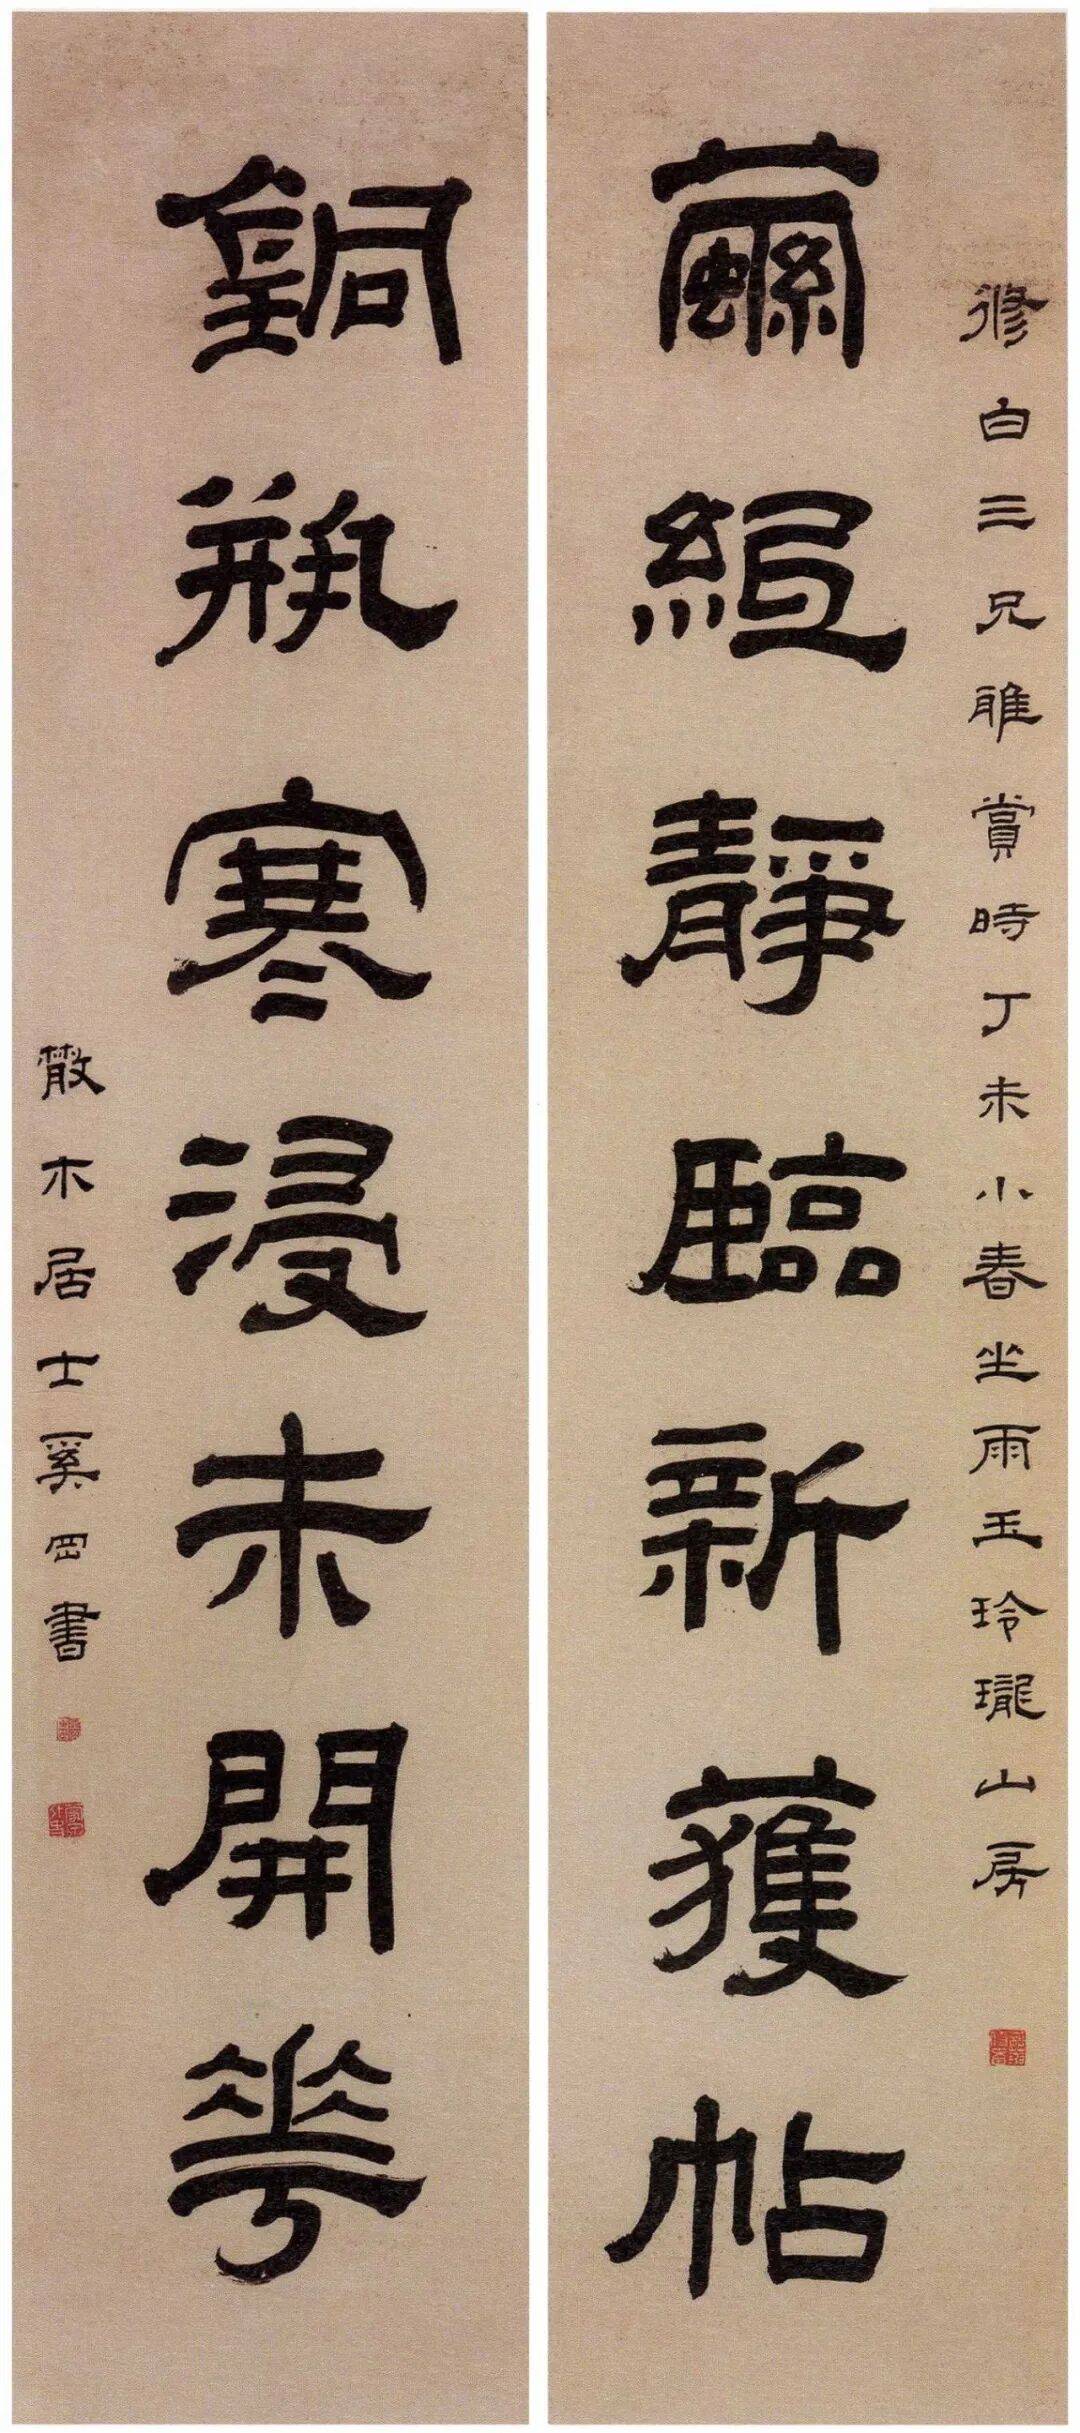 修白三兄雅賞時丁未小春坐雨玉玲瓏山房
繭紙靜臨新獲帖
銅瓶寒浸未開華
散木居士奚岡書